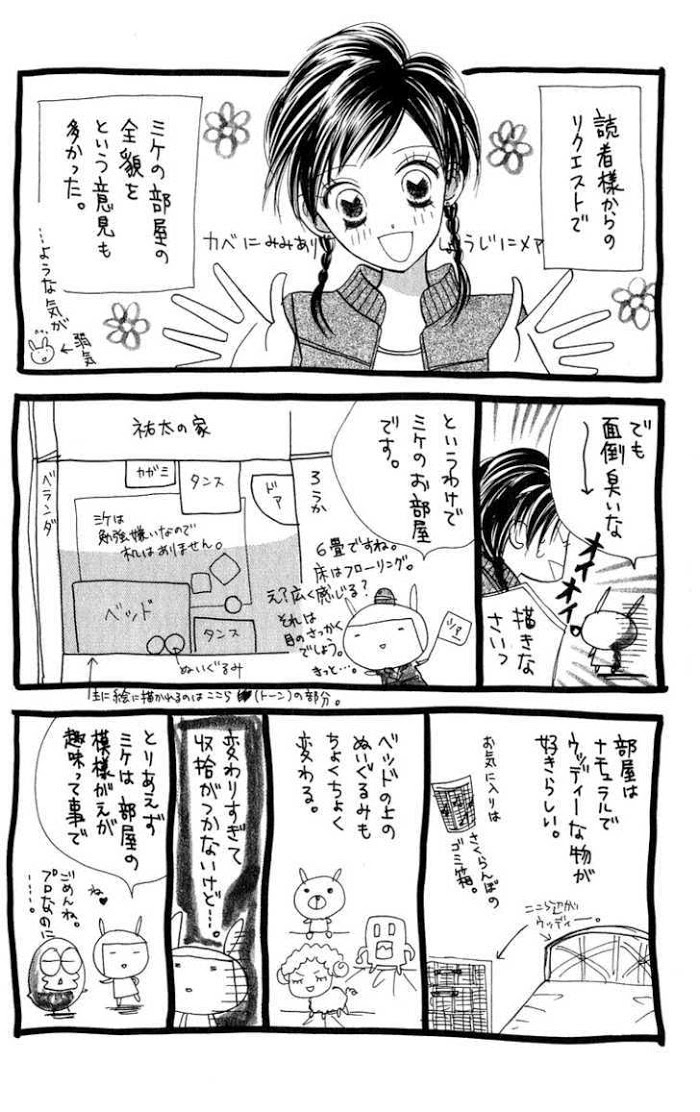 読者様からの
リクエストで
ミケの部屋の
全貌を
という意見も
多かった。
…ような気が
弱気
カベにみみあり
しょうじにメア
でも
面倒臭いな
オイ
オイ。
描きな
さいっ
というわけで
ミケのお部屋
です。
祐太の家
ベランダ
カガミ
タンス
ドア
ろうか
ミケは
勉強嫌いなので
机はありません。
ベッド
タンス
ぬいぐるみ
6畳ですね。
床はフローリング。
え?広く感じる?
それは
目のさっかく
でしょう。
きっと…。
ツアー
主に絵に描かれるのはここら(トーン)の部分。
部屋は
ナチュラルで
ウッディーな物が
好きらしい。
お気に入りは
さくらんぼの
ゴミ箱。
ここら辺が
ウッディー。
ベッドの上の
ぬいぐるみも
ちょくちょく
変わる。
変わりすぎて
収拾がつかないけど…。
とりあえず
ミケは部屋の
模様がえが
趣味って事で
ね♥
ごめんね。
プロなのに
……。